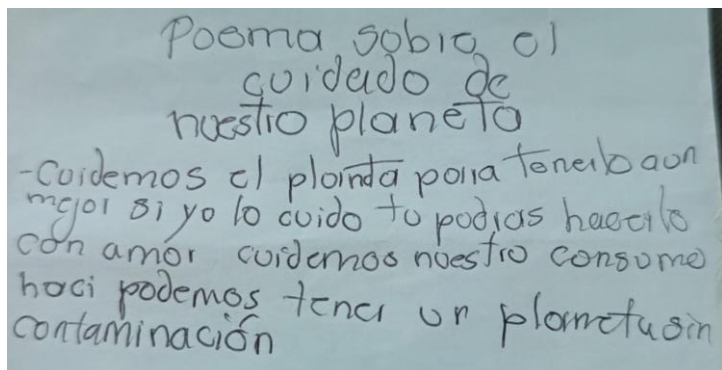 Poema sobre el
cuidado de
nuestro planeta
-Cuidemos el plainta para tenerlo aun
mejor si yo lo cuido tu podras hacerlo
con amor cuidemos nuestro consumo
haci podemos tener un planeta sin
contaminación